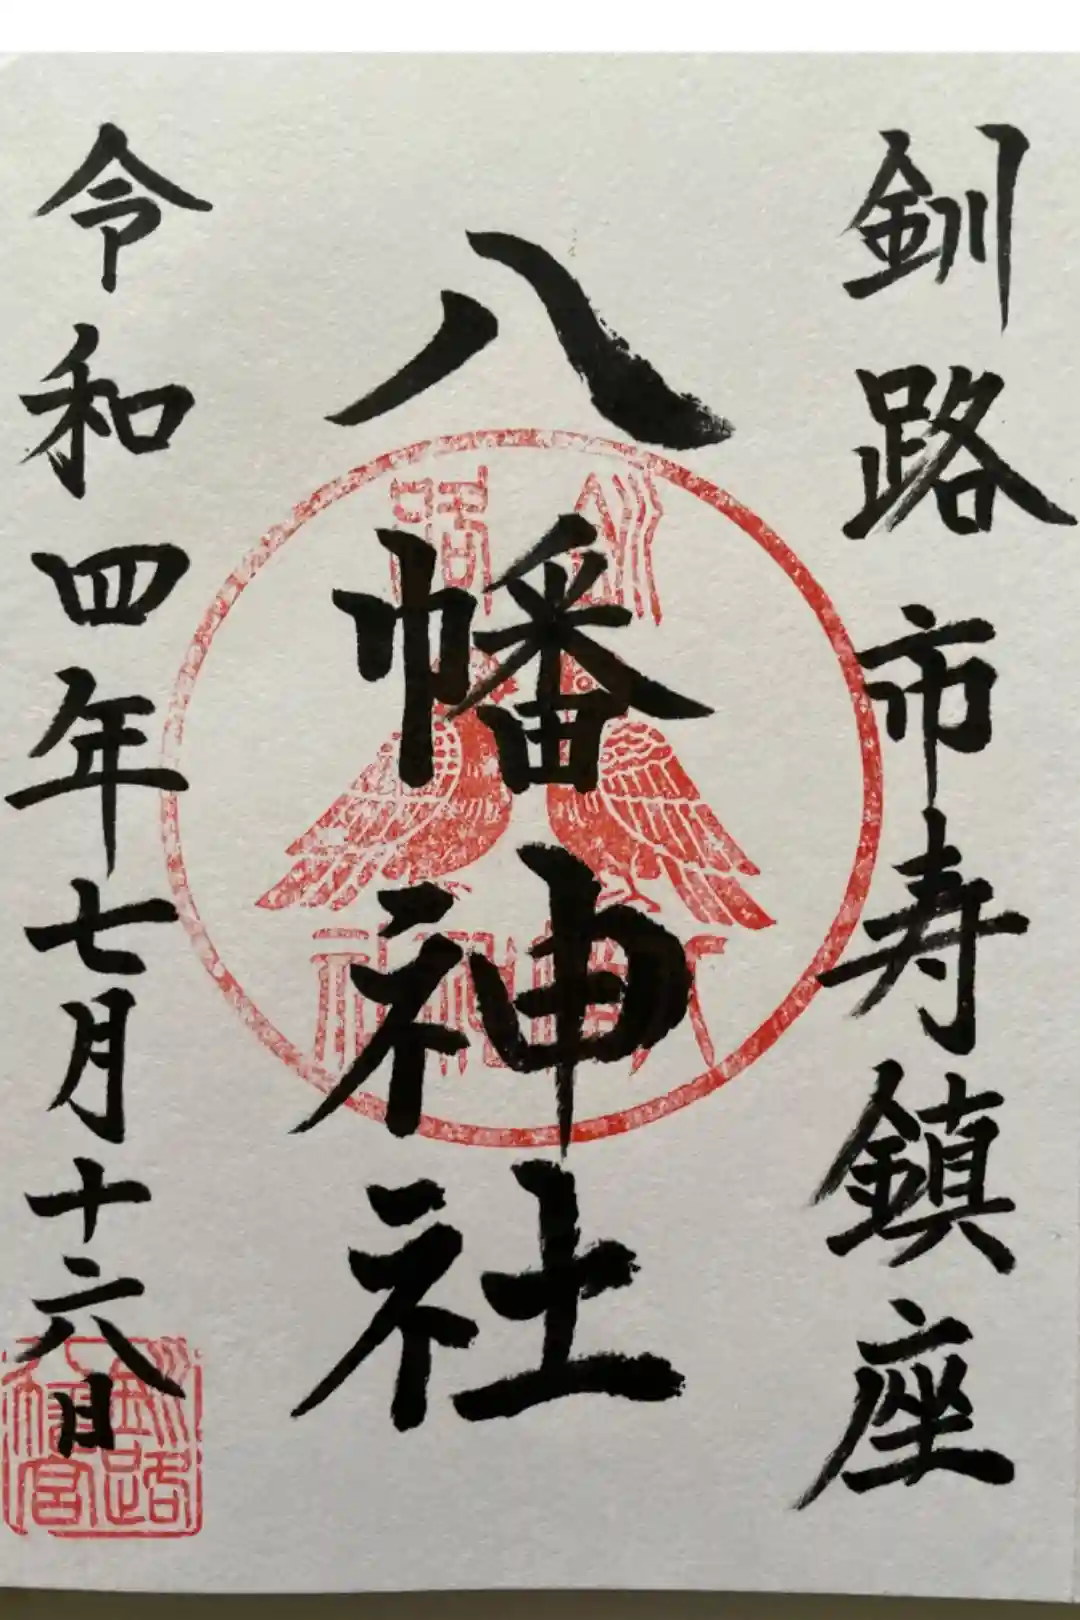 釧路市寿鎮座
八幡神社
令和四年七月十六日
釧路
八幡神社
釧路
八幡宮